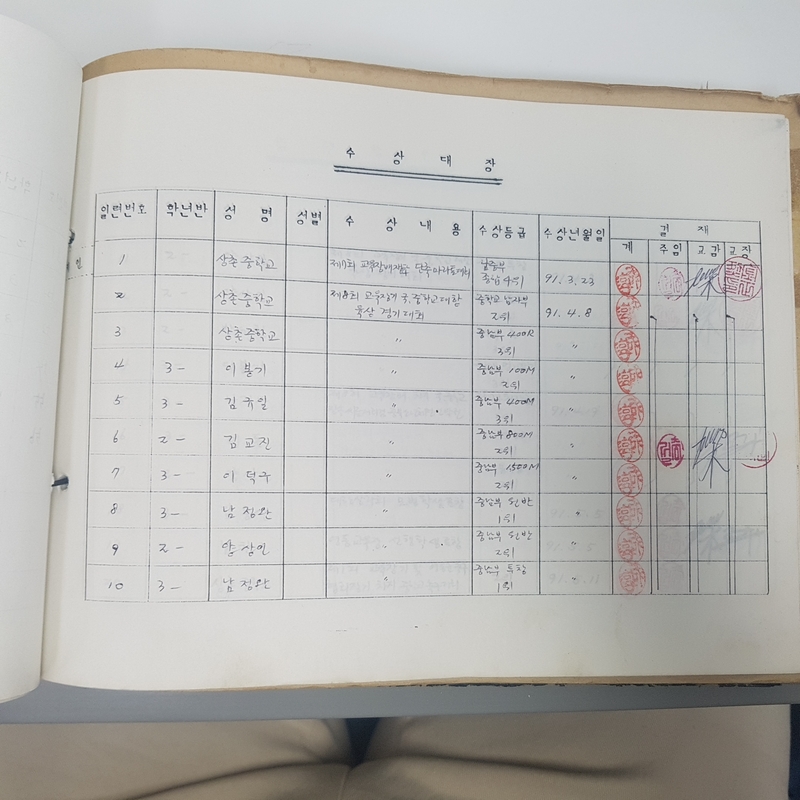 수 상 대 장
일련번호 학년반 성 명 성별 수 상 내 용 수상등급 수상년월일 결 재
계 주임 교감 교장
1 상촌중학교 제1회 단축마라톤대회 남중부 91.3.23
2 상촌중학교 제8회 교육장기 국,중학교대항 육상경기대회 중학교 남자부 2위 91.4.8
3 상촌중학교 〃 중남부 400R 3위 〃
4 3- 이봉기 〃 중남부 100M 2위 〃
5 3- 김규일 〃 중남부 400M 3위 〃
6 2- 김교진 〃 중남부 800M 2위 〃
7 3- 이덕구 〃 중남부 1500M 2위 〃
8 3- 남정완 〃 중남부 원반 1위 〃
9 2- 양상민 〃 중남부 원반 2위 〃
10 3- 남정완 〃 중남부 투창 1위 〃